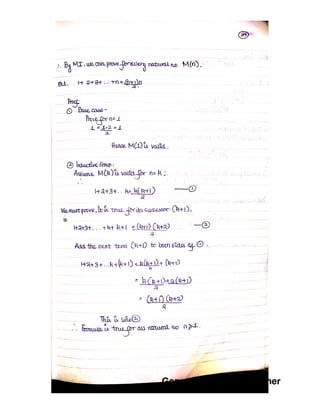 29
∴ By M.I. we can prove for every natural no M(n).
Ex1. 1+2+3+...+n = (n+1)n/2
Proof
① Base case -
Prove for n=1
1 = 1·2/2 = 1
Hence M(1) is valid.
② Inductive Step:
Assume M(k) is valid for n=k;
∴
1+2+3+...k = k(k+1)/2 —①
We must prove, It is true for its successor (k+1),
is
1+2+3+...+k+k+1 = (k+1)(k+2)/2 —②
Add the next term (k+1) to both sides of ①.
1+2+3+...k+(k+1) = k(k+1)/2 + (k+1)
= k(k+1)+2(k+1)/2
= (k+1)(k+2)/2
This is like ②
∴ Formula is true for all natural no n≥1.